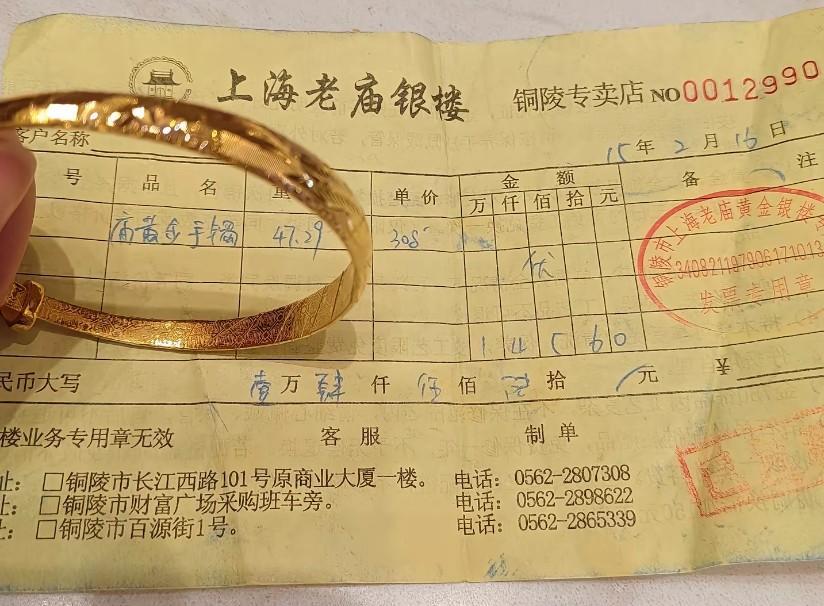 上海老庙银楼 铜陵专卖店 NO0012990
客户名称 15年2月16日
号 品名 重 单价 金额 备注
万仟佰拾元
庙黄金手镯 47.29 308
14560
民币大写 壹万肆仟伍佰 拾 元 ¥
楼业务专用章无效 客服 制单
址：□铜陵市长江西路101号原商业大厦一楼。 电话：0562-2807308
址：□铜陵市财富广场采购班车旁。 电话：0562-2898622
址：□铜陵市百源街1号。 电话：0562-2865339
铜陵市上海老庙黄金银楼
340821197906171013
发票专用章